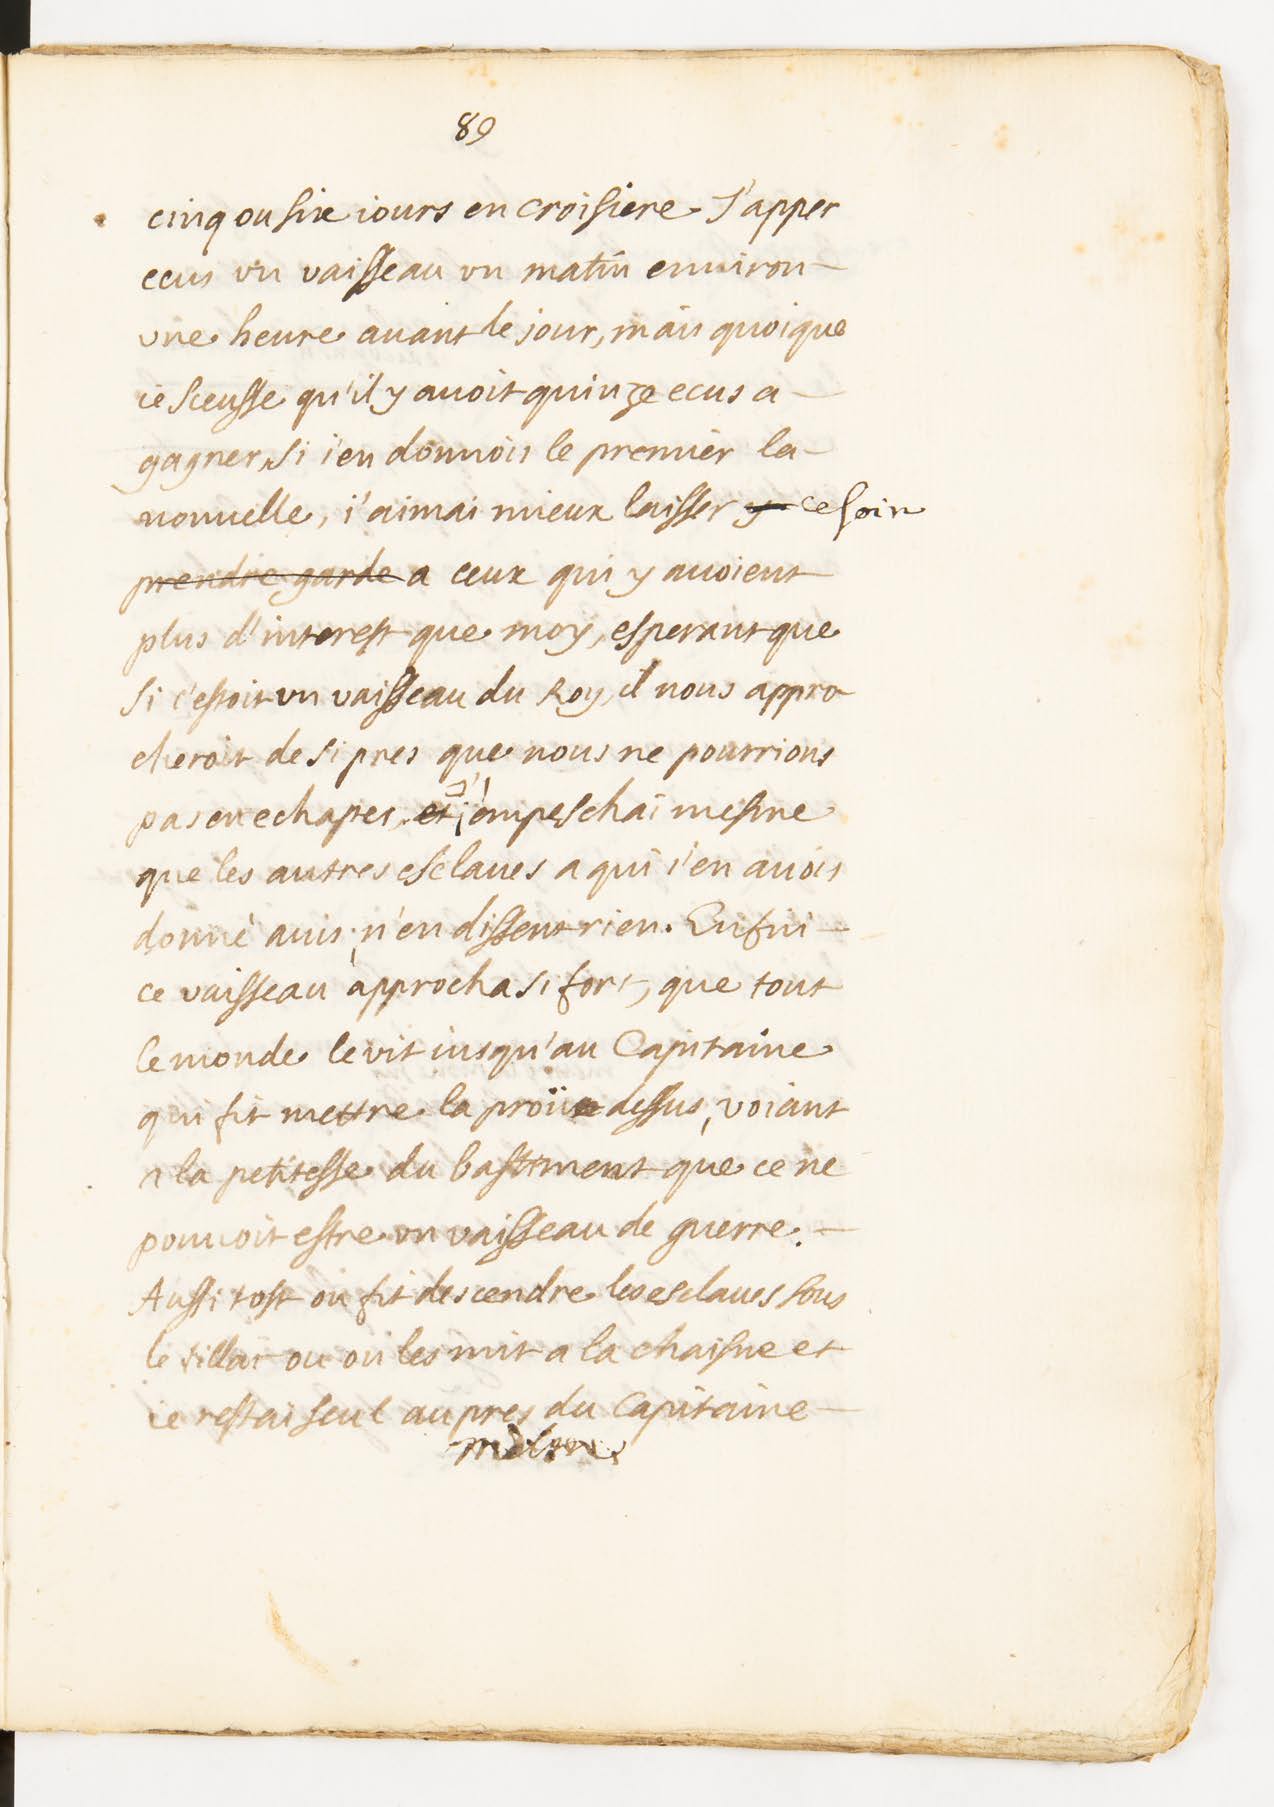 89
cinq ou six iours en croisiere. J'apper
ceus vn vaisseau vn matin enuiron
vne heure auant le jour, mais quoique
ie sceusse qu'il y auoit quinze ecus a
gagner, si i'en donnois le premier la
nouuelle, i'aimai mieux laisser y ce soin
prendre garde a ceux qui y auoient
plus d'interest que moy, esperant que
si c'estoit vn vaisseau du Roy, il nous appro
cheroit de si pres que nous ne pourrions
pas en echaper, et j'empeschai mesme
que les autres esclaues a qui i'en auois
donné auis, n'en dissent rien. Enfin
ce vaisseau approcha si fort, que tout
le monde le vit iusqu'au Capitaine
qui fit mettre la proüe dessus, voiant
a la petitesse du bastiment que ce ne
pouuoit estre vn vaisseau de guerre.
Aussi tost on fit descendre les esclaues sous
le tillac ou on les mit a la chaisne et
ie restai seul aupres du Capitaine